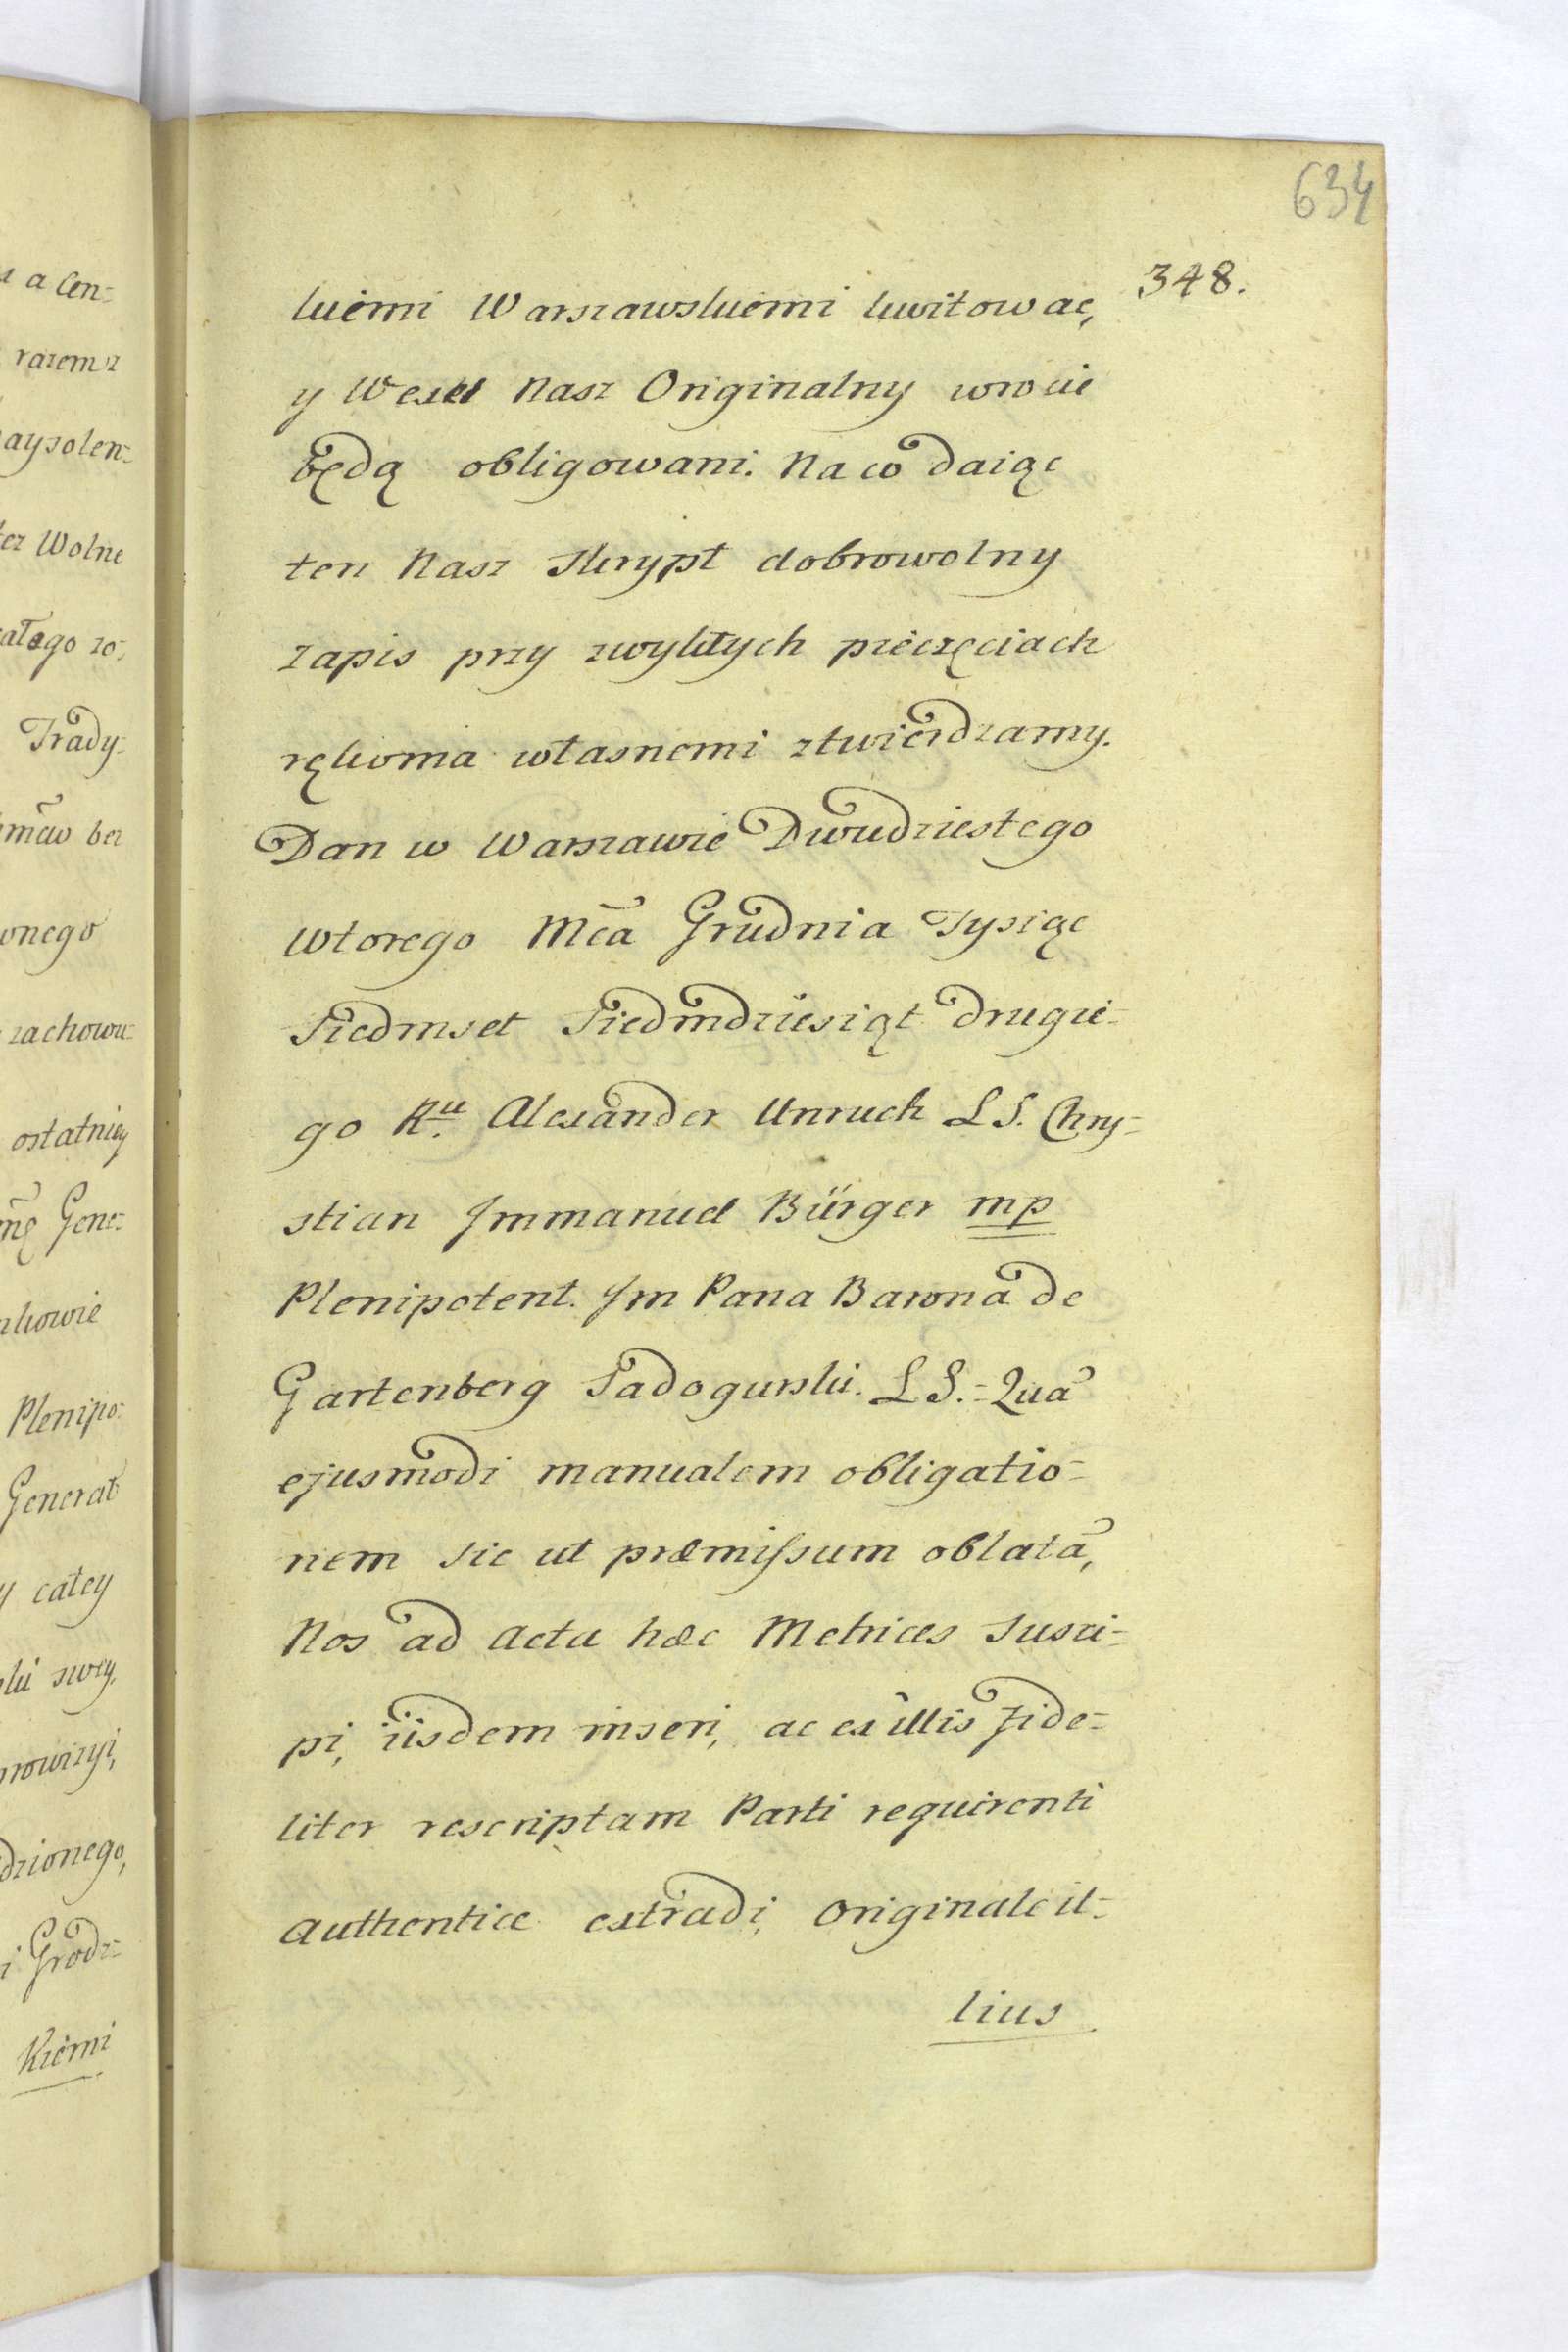 634
348.
kiémi Warszawskiémi kwitowac,
y Wexel Nasz Originalny wrocie
będą obligowani. Na co daiąc
ten Nasz Skrypt dobrowolny
zapis przy zwykłych piéczęciach
rękoma własnemi ztwiérdzamy.
Dan w Warszawie Dwudziestego
wtorego Mca Grudnia Tysiąc
Siedmset Siedmdziesiąt drugie-
go Ru. Alexander Unruch LS. Chry-
stian Jmmanuel Bürger mp
Plenipotent. Jm Pana Barona de
Gartenberg Sadogurski. LS.- Quã
ejusmodi manualem obligatio-
nem sic ut præmissum oblatã,
Nos ad Acta hæc Metrices susci-
pi, iisdem inseri, ac ex illis fide-
liter rescriptam Parti requirenti
authentice extradi, Originale il-
lius
a Cen-
razem z
Wolne
Trady-
bez
zachowu-
ostatniey
Gene-
Plenipo-
Generał
całey
swey.
Grodz-
Kiémi